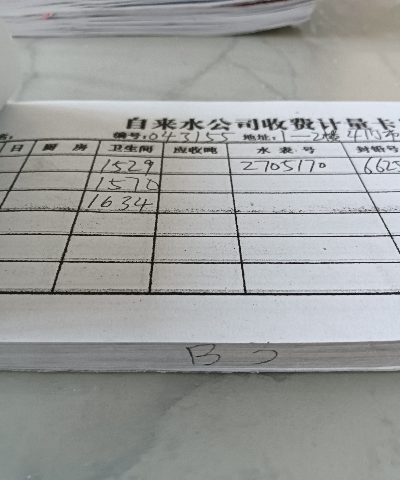 自来水公司收费计量卡
编号:043155 地址:1-2楼4门市
日 厨房 卫生间 应收吨 水表号 封铅号
1529 2705170 6625
1570
1634
B